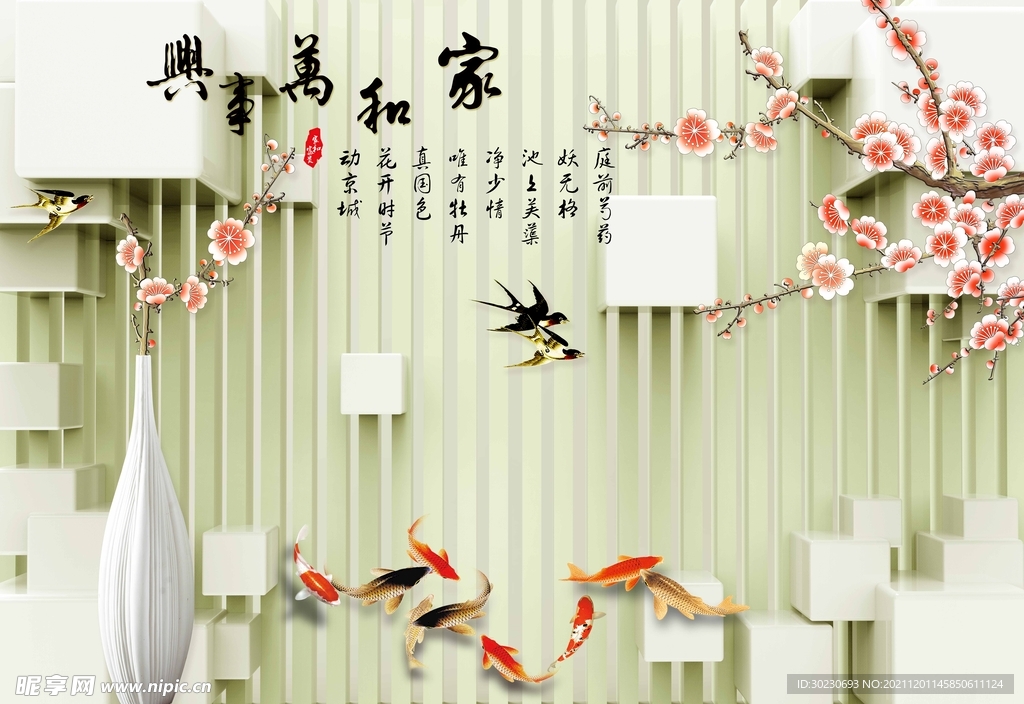 家和萬事興
庭前芍药
妖无格
池上芙蕖
净少情
唯有牡丹
真国色
花开时节
动京城
昵享网 www.nipic.cn
ID:30230693 NO:20211201145850611124